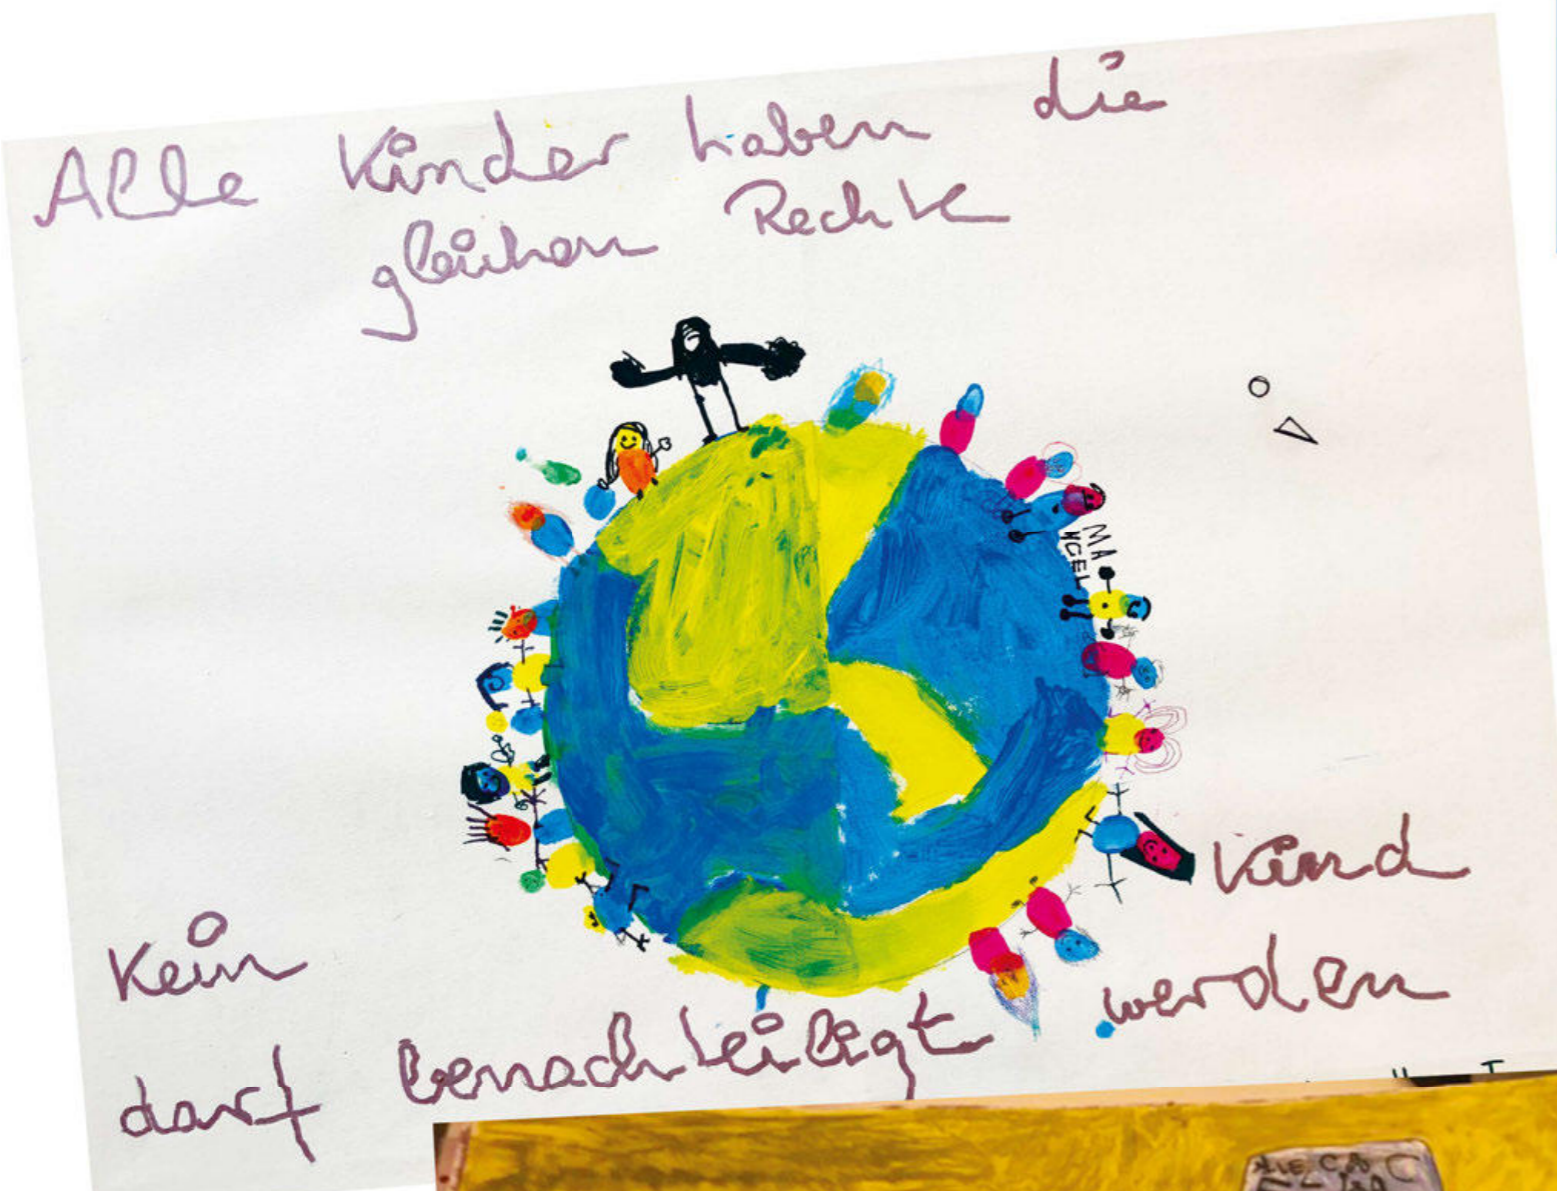 Alle Kinder haben die
gleichen Rechte
MA
NGEL
Kein Kind
darf benachteiligt werden